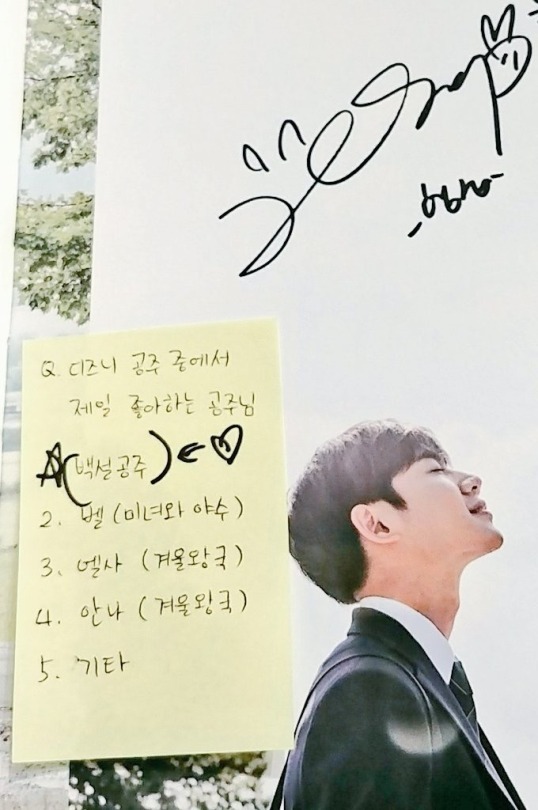 Q. 디즈니 공주 중에서
제일 좋아하는 공주님
(백설공주) ←
2. 벨 (미녀와 야수)
3. 엘사 (겨울왕국)
4. 안나 (겨울왕국)
5. 기타